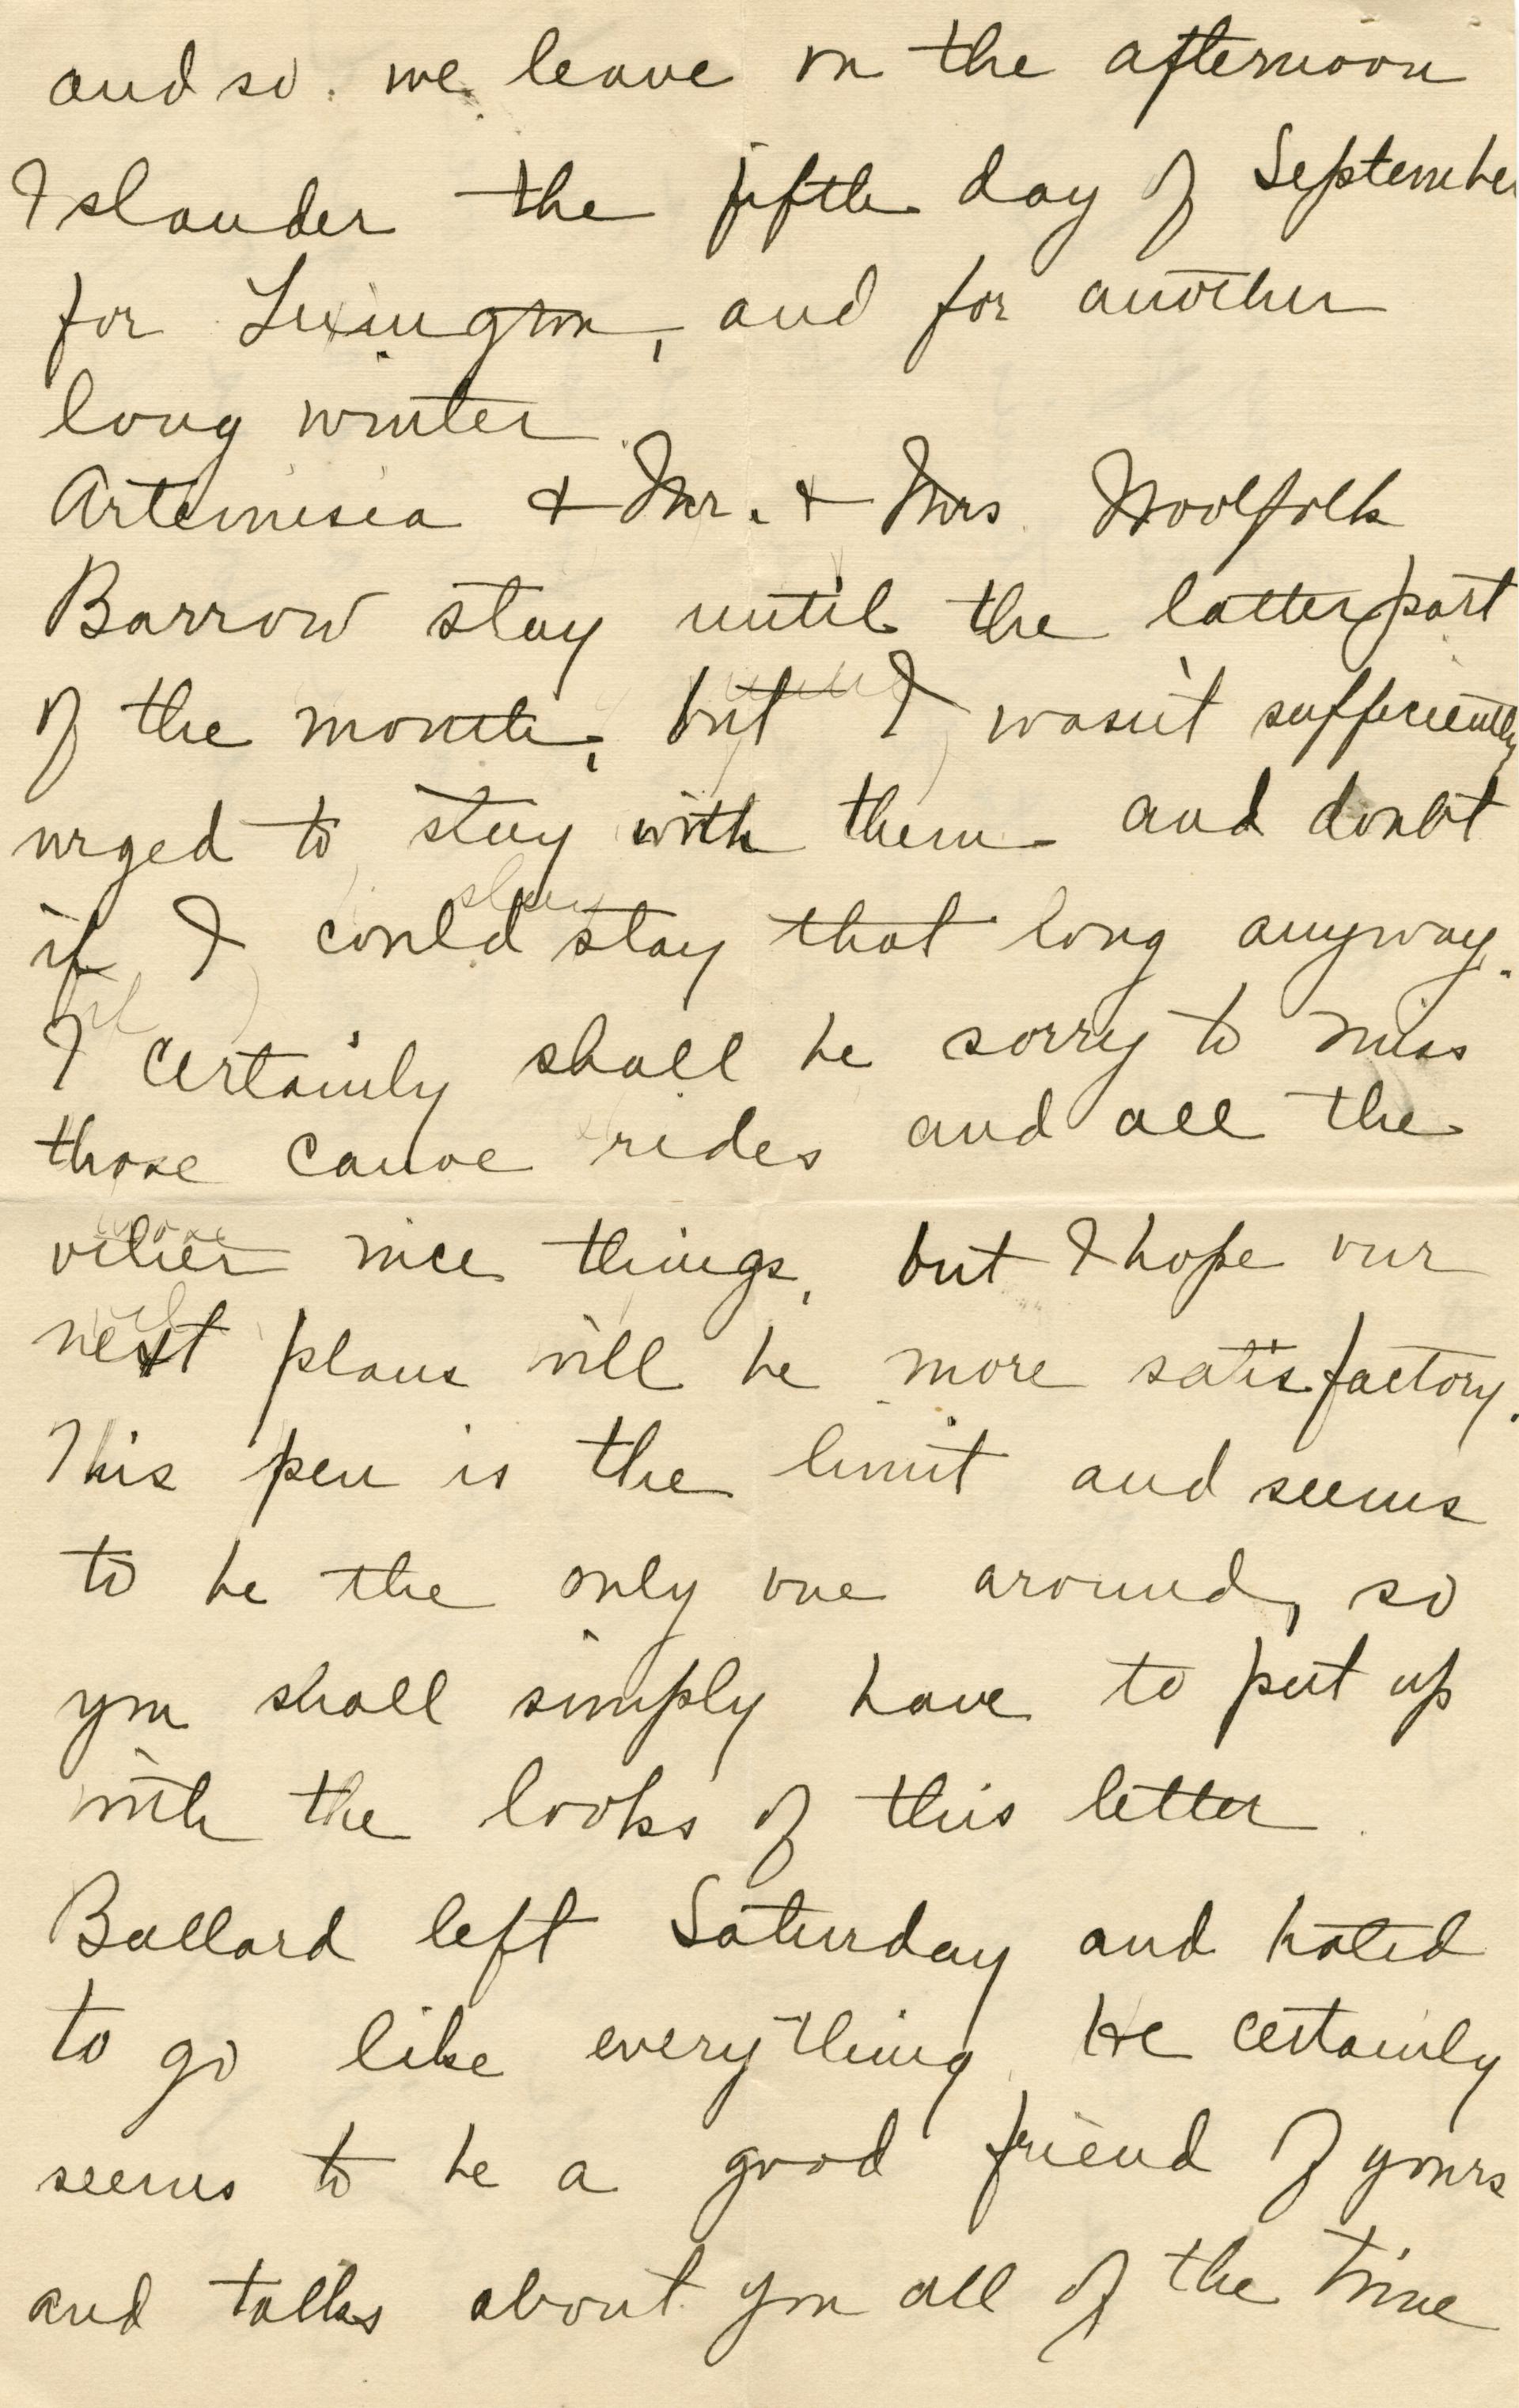 and so we leave on the afternoon
Islander the fifth day of September
for Lexington, and for another
long winter.
Artemisia & Mr. & Mrs Woolfolk
Barrow stay until the latter part
of the month, but I wasn't sufficiently
urged to stay with them and doubt
if I could stay that long anyway.
I certainly shall be sorry to miss
those canoe rides and all the
other nice things, but I hope our
next plans will be more satisfactory.
This pen is the limit and seems
to be the only one around, so
you shall simply have to put up
with the looks of this letter.
Ballard left Saturday and hated
to go like everything. He certainly
seems to be a good friend of yours
and talks about you all of the time